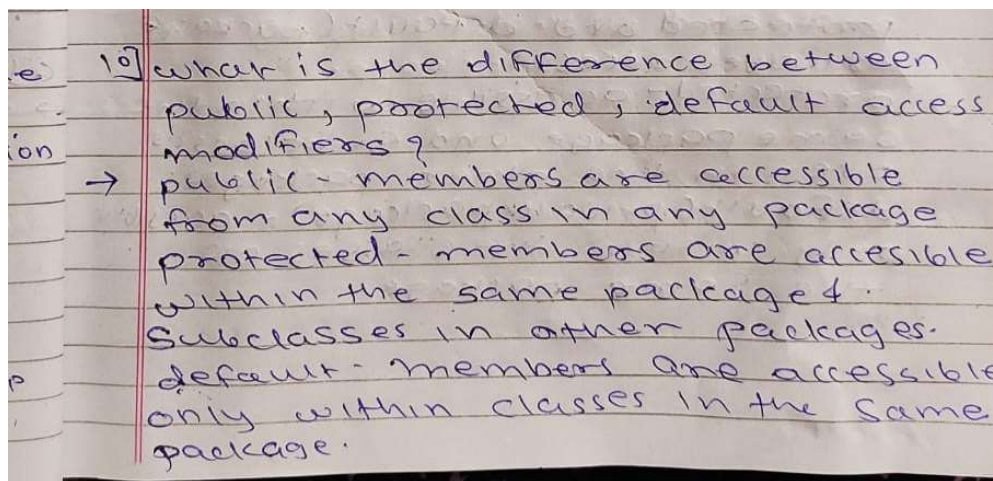 e 10] what is the difference between
public, protected, default access
ion modifiers?
→ public - members are accessible
from any class in any package
protected - members are accesible
within the same package &
subclasses in other packages.
default - members are accessible
p only within classes in the same
package.